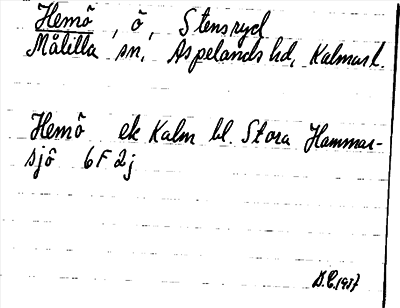 Hemö, ö, Stensryd
Målilla sn, Aspelands hd, Kalmar l.
Hemö ek Kalm bl. Stora Hammar-
sjö 6F 2j
D.C. 1937